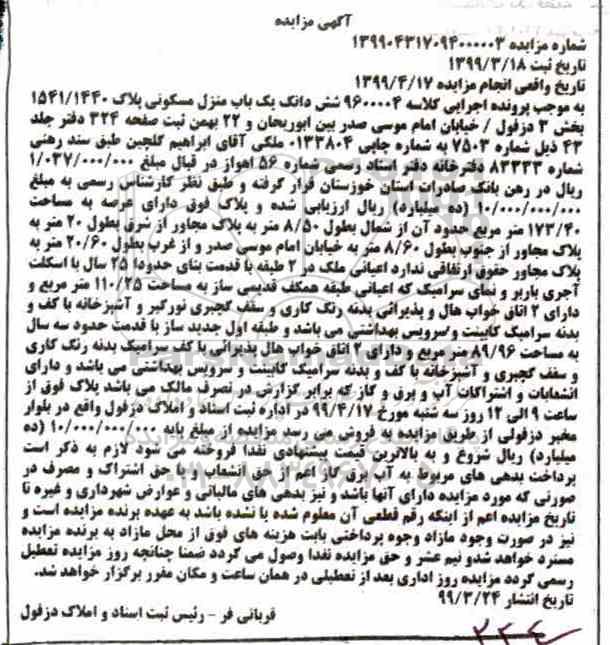 آگهی مزایده
شماره مزایده ۱۳۹۹۰۴۳۱۷۰۹۴۰۰۰۰۰۳
تاریخ ثبت ۱۳۹۹/۳/۱۸
تاریخ واقعی انجام مزایده ۱۳۹۹/۴/۱۷
به موجب پرونده اجرایی کلاسه ۹۶۰۰۰۴ شش دانگ یک باب منزل مسکونی پلاک ۱۵۴۱/۱۴۴۰
بخش ۳ دزفول / خیابان امام موسی صدر بین ابوریحان و ۲۲ بهمن ثبت صفحه ۳۲۴ دفتر جلد
۴۳ ذیل شماره ۷۵۰۳ به شماره چاپی ۰۱۳۳۸۰۴ ملکی آقای ابراهیم گلچین طبق سند رهنی
شماره ۸۳۳۳۳ دفترخانه دفتر اسناد رسمی شماره ۵۶ اهواز در قبال مبلغ ۱/۰۳۷/۰۰۰/۰۰۰
ریال در رهن بانک صادرات استان خوزستان قرار گرفته و طبق نظر کارشناس رسمی به مبلغ
۱۰/۰۰۰/۰۰۰/۰۰۰ (ده میلیارد) ریال ارزیابی شده و پلاک فوق دارای عرصه به مساحت
۱۷۳/۴۰ متر مربع حدود آن از شمال بطول ۸/۵۰ متر به پلاک مجاور از شرق بطول ۲۰ متر به
پلاک مجاور از جنوب بطول ۸/۶۰ متر به خیابان امام موسی صدر و از غرب بطول ۲۰/۶۰ متر به
پلاک مجاور حقوق ارتفاقی ندارد اعیانی ملک در ۲ طبقه با قدمت بنای حدودا ۲۵ سال با اسکلت
آجری باربر و نمای سرامیک که اعیانی طبقه همکف قدیمی ساز به مساحت ۱۱۰/۲۵ متر مربع و
دارای ۲ اتاق خواب هال و پذیرائی بدنه رنگ کاری و سقف گچبری نورگیر و آشپزخانه با کف و
بدنه سرامیک کابینت و سرویس بهداشتی می باشد و طبقه اول جدید ساز با قدمت حدود سه سال
به مساحت ۸۹/۹۶ متر مربع و دارای ۲ اتاق خواب هال پذیرائی با کف سرامیک بدنه رنگ کاری
و سقف گچبری و آشپزخانه با کف و بدنه سرامیک کابینت و سرویس بهداشتی می باشد و دارای
انشعابات و اشتراکات آب و برق و گاز که برابر گزارش در تصرف مالک می باشد پلاک فوق از
ساعت ۹ الی ۱۲ روز سه شنبه مورخ ۹۹/۴/۱۷ در اداره ثبت اسناد و املاک دزفول واقع در بلوار
مخبر دزفولی از طریق مزایده به فروش می رسد مزایده از مبلغ پایه ۱۰/۰۰۰/۰۰۰/۰۰۰ (ده
میلیارد) ریال شروع و به بالاترین قیمت پیشنهادی نقدا فروخته می شود لازم به ذکر است
پرداخت بدهی های مربوط به آب برق گاز اعم از حق انشعاب و یا حق اشتراک و مصرف در
صورتی که مورد مزایده دارای آنها باشد و نیز بدهی های مالیاتی و عوارض شهرداری و غیره تا
تاریخ مزایده اعم از اینکه رقم قطعی آن معلوم شده یا نشده باشد به عهده برنده مزایده است و
نیز در صورت وجود مازاد وجوه پرداختی بابت هزینه های فوق از محل مازاد به برنده مزایده
مسترد خواهد شدو نیم عشر و حق مزایده نقدا وصول می گردد ضمنا چنانچه روز مزایده تعطیل
رسمی گردد مزایده روز اداری بعد از تعطیلی در همان ساعت و مکان مقرر برگزار خواهد شد.
تاریخ انتشار ۹۹/۳/۲۴
قربانی فر - رئیس ثبت اسناد و املاک دزفول